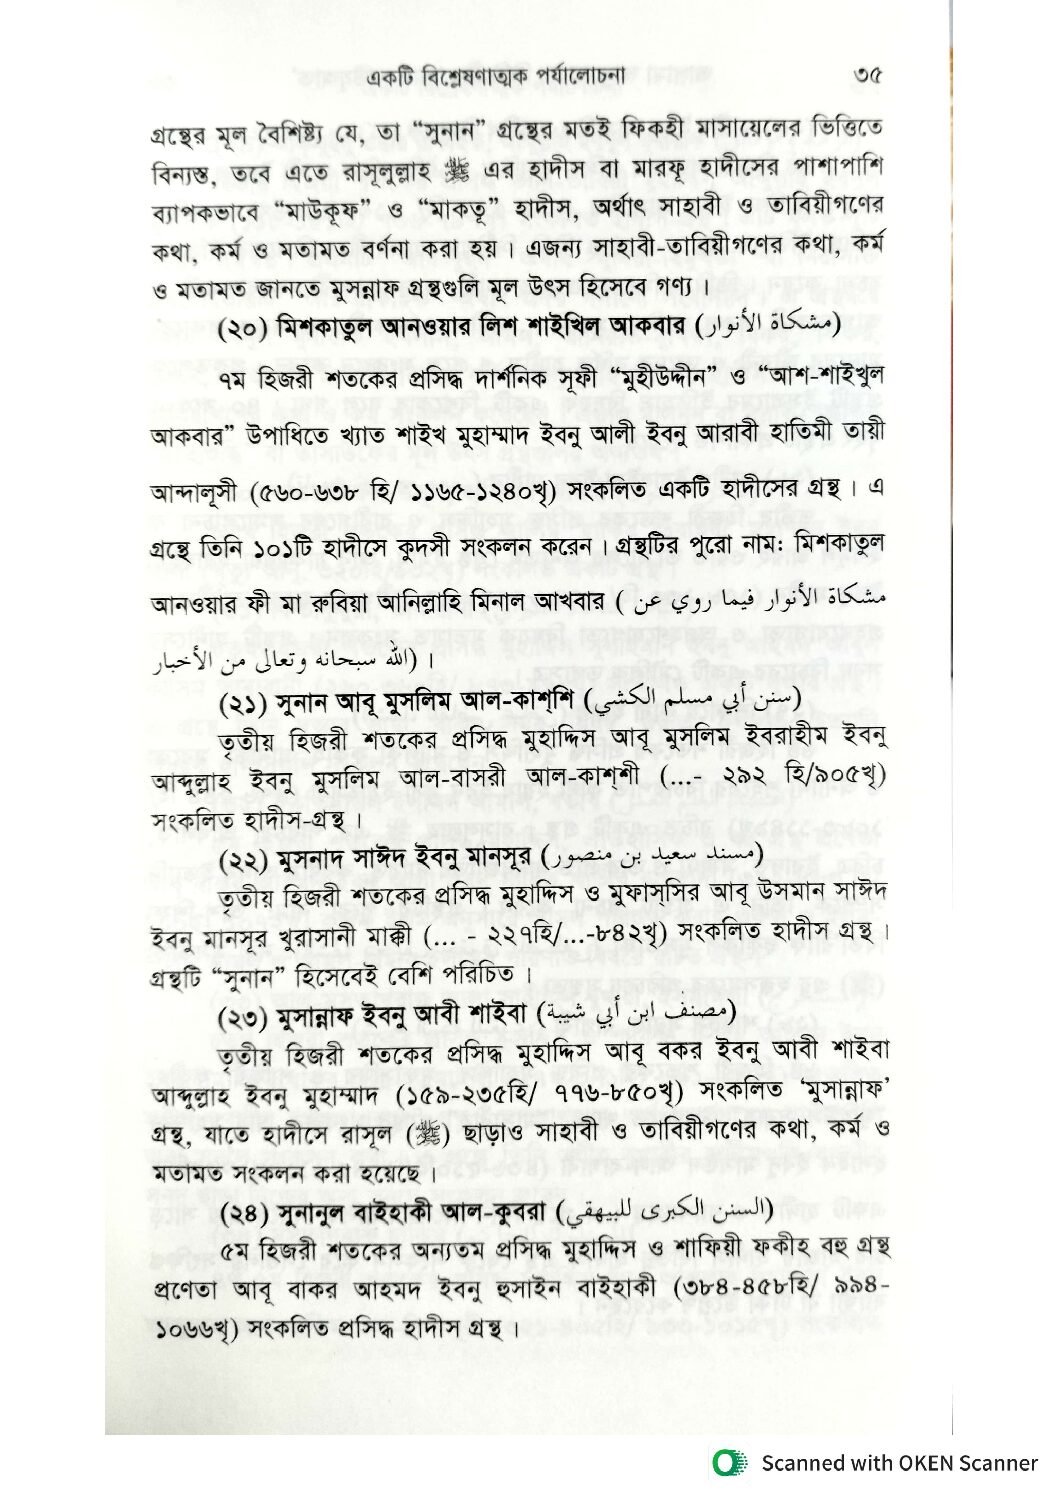 একটি বিশ্লেষণাত্মক পর্যালোচনা ৩৫
গ্রন্থের মূল বৈশিষ্ট্য যে, তা “সুনান” গ্রন্থের মতই ফিকহী মাসায়েলের ভিত্তিতে
বিন্যস্ত, তবে এতে রাসূলুল্লাহ ﷺ এর হাদীস বা মারফূ হাদীসের পাশাপাশি
ব্যাপকভাবে “মাউকূফ” ও “মাকতূ” হাদীস, অর্থাৎ সাহাবী ও তাবিয়ীগণের
কথা, কর্ম ও মতামত বর্ণনা করা হয়। এজন্য সাহাবী-তাবিয়ীগণের কথা, কর্ম
ও মতামত জানতে মুসন্নাফ গ্রন্থগুলি মূল উৎস হিসেবে গণ্য।
(২০) মিশকাতুল আনওয়ার লিশ শাইখিল আকবার (مشكاة الأنوار)
৭ম হিজরী শতকের প্রসিদ্ধ দার্শনিক সূফী “মুহীউদ্দীন” ও “আশ-শাইখুল
আকবার” উপাধিতে খ্যাত শাইখ মুহাম্মাদ ইবনু আলী ইবনু আরাবী হাতিমী তায়ী
আন্দালূসী (৫৬০-৬৩৮ হি/ ১১৬৫-১২৪০খৃ) সংকলিত একটি হাদীসের গ্রন্থ। এ
গ্রন্থে তিনি ১০১টি হাদীসে কুদসী সংকলন করেন। গ্রন্থটির পুরো নাম: মিশকাতুল
আনওয়ার ফী মা রুবিয়া আনিল্লাহি মিনাল আখবার (مشكاة الأنوار فيما روي عن
الله سبحانه وتعالى من الأخبار)।
(২১) সুনান আবূ মুসলিম আল-কাশ্শি (سنن أبي مسلم الكشي)
তৃতীয় হিজরী শতকের প্রসিদ্ধ মুহাদ্দিস আবূ মুসলিম ইবরাহীম ইবনু
আব্দুল্লাহ ইবনু মুসলিম আল-বাসরী আল-কাশ্শী (...- ২৯২ হি/৯০৫খৃ)
সংকলিত হাদীস-গ্রন্থ।
(২২) মুসনাদ সাঈদ ইবনু মানসূর (مسند سعيد بن منصور)
তৃতীয় হিজরী শতকের প্রসিদ্ধ মুহাদ্দিস ও মুফাস্সির আবূ উসমান সাঈদ
ইবনু মানসূর খুরাসানী মাক্কী (... - ২২৭হি/...-৮৪২খৃ) সংকলিত হাদীস গ্রন্থ।
গ্রন্থটি “সুনান” হিসেবেই বেশি পরিচিত।
(২৩) মুসান্নাফ ইবনু আবী শাইবা (مصنف ابن أبي شيبة)
তৃতীয় হিজরী শতকের প্রসিদ্ধ মুহাদ্দিস আবূ বকর ইবনু আবী শাইবা
আব্দুল্লাহ ইবনু মুহাম্মাদ (১৫৯-২৩৫হি/ ৭৭৬-৮৫০খৃ) সংকলিত ‘মুসান্নাফ’
গ্রন্থ, যাতে হাদীসে রাসূল (ﷺ) ছাড়াও সাহাবী ও তাবিয়ীগণের কথা, কর্ম ও
মতামত সংকলন করা হয়েছে।
(২৪) সুনানুল বাইহাকী আল-কুবরা (السنن الكبرى للبيهقي)
৫ম হিজরী শতকের অন্যতম প্রসিদ্ধ মুহাদ্দিস ও শাফিয়ী ফকীহ বহু গ্রন্থ
প্রণেতা আবূ বাকর আহমদ ইবনু হুসাইন বাইহাকী (৩৮৪-৪৫৮হি/ ৯৯৪-
১০৬৬খৃ) সংকলিত প্রসিদ্ধ হাদীস গ্রন্থ।
Scanned with OKEN Scanner